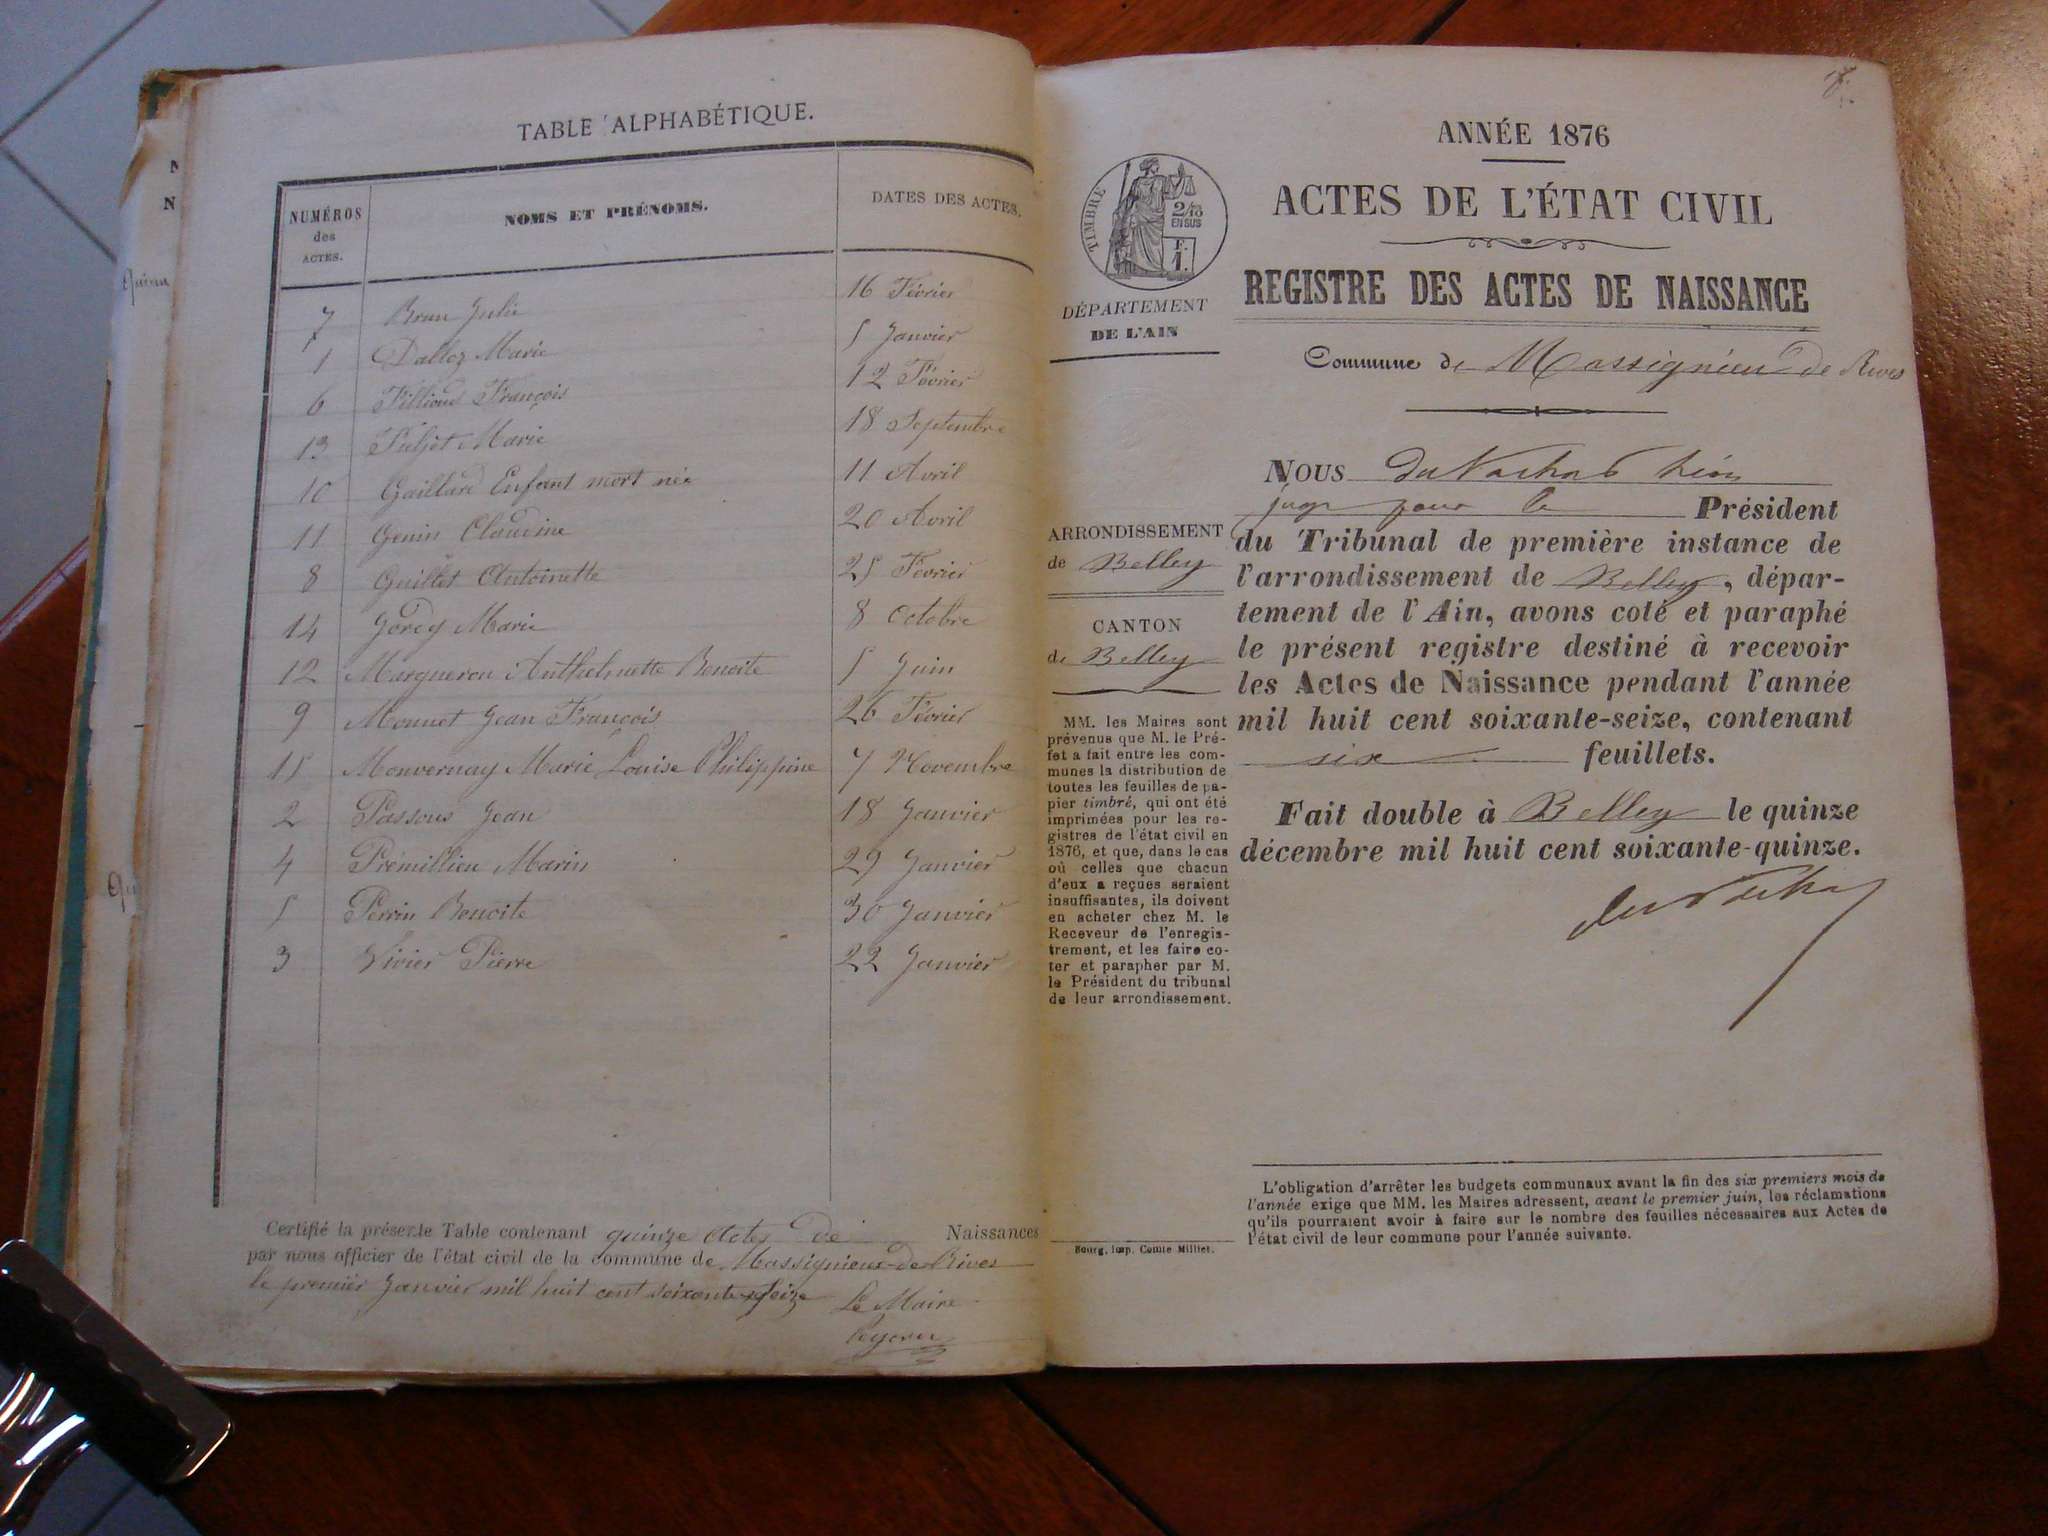 TABLE ALPHABÉTIQUE.
NUMÉROS des ACTES. NOMS ET PRÉNOMS. DATES DES ACTES.
7 Brun Julie 16 Février
1 Dalloz Marie 5 Janvier
6 Fillioud François 12 Février
13 Puljot Marie 18 Septembre
10 Gaillard Enfant mort née 11 Avril
11 Genin Claudine 20 Avril
8 Guillet Antoinette 25 Février
14 Jorcy Marie 8 Octobre
12 Margueron Anthelmette Benoite 5 Juin
9 Monnet Jean François 26 Février
15 Monvernay Marie Louise Philippine 7 Novembre
2 Passous Jean 18 Janvier
4 Prémillieu Marin 29 Janvier
5 Perrin Benoite 30 Janvier
3 Vivier Pierre 22 Janvier
Certifié la présente Table contenant quinze Actes de Naissances
par nous officier de l'état civil de la commune de Massignieu-de-Rives
le premier Janvier mil huit cent soixante-seize Le Maire
ANNÉE 1876
ACTES DE L'ÉTAT CIVIL
REGISTRE DES ACTES DE NAISSANCE
TIMBRE
2/10
EN SUS
F.
1.
DÉPARTEMENT
DE L'AIN
Commune de Massignieu de Rives
ARRONDISSEMENT
de Belley
CANTON
de Belley
MM. les Maires sont
prévenus que M. le Pré-
fet a fait entre les com-
munes la distribution de
toutes les feuilles de pa-
pier timbré, qui ont été
imprimées pour les re-
gistres de l'état civil en
1876, et que, dans le cas
où celles que chacun
d'eux a reçues seraient
insuffisantes, ils doivent
en acheter chez M. le
Receveur de l'enregis-
trement, et les faire co-
ter et parapher par M.
le Président du tribunal
de leur arrondissement.
NOUS
juge pour le Président
du Tribunal de première instance de
l'arrondissement de Belley, dépar-
tement de l'Ain, avons coté et paraphé
le présent registre destiné à recevoir
les Actes de Naissance pendant l'année
mil huit cent soixante-seize, contenant
six feuillets.
Fait double à Belley le quinze
décembre mil huit cent soixante-quinze.
L'obligation d'arrêter les budgets communaux avant la fin des six premiers mois de
l'année exige que MM. les Maires adressent, avant le premier juin, les réclamations
qu'ils pourraient avoir à faire sur le nombre des feuilles nécessaires aux Actes de
l'état civil de leur commune pour l'année suivante.
Bourg, imp. Comte Milliet.